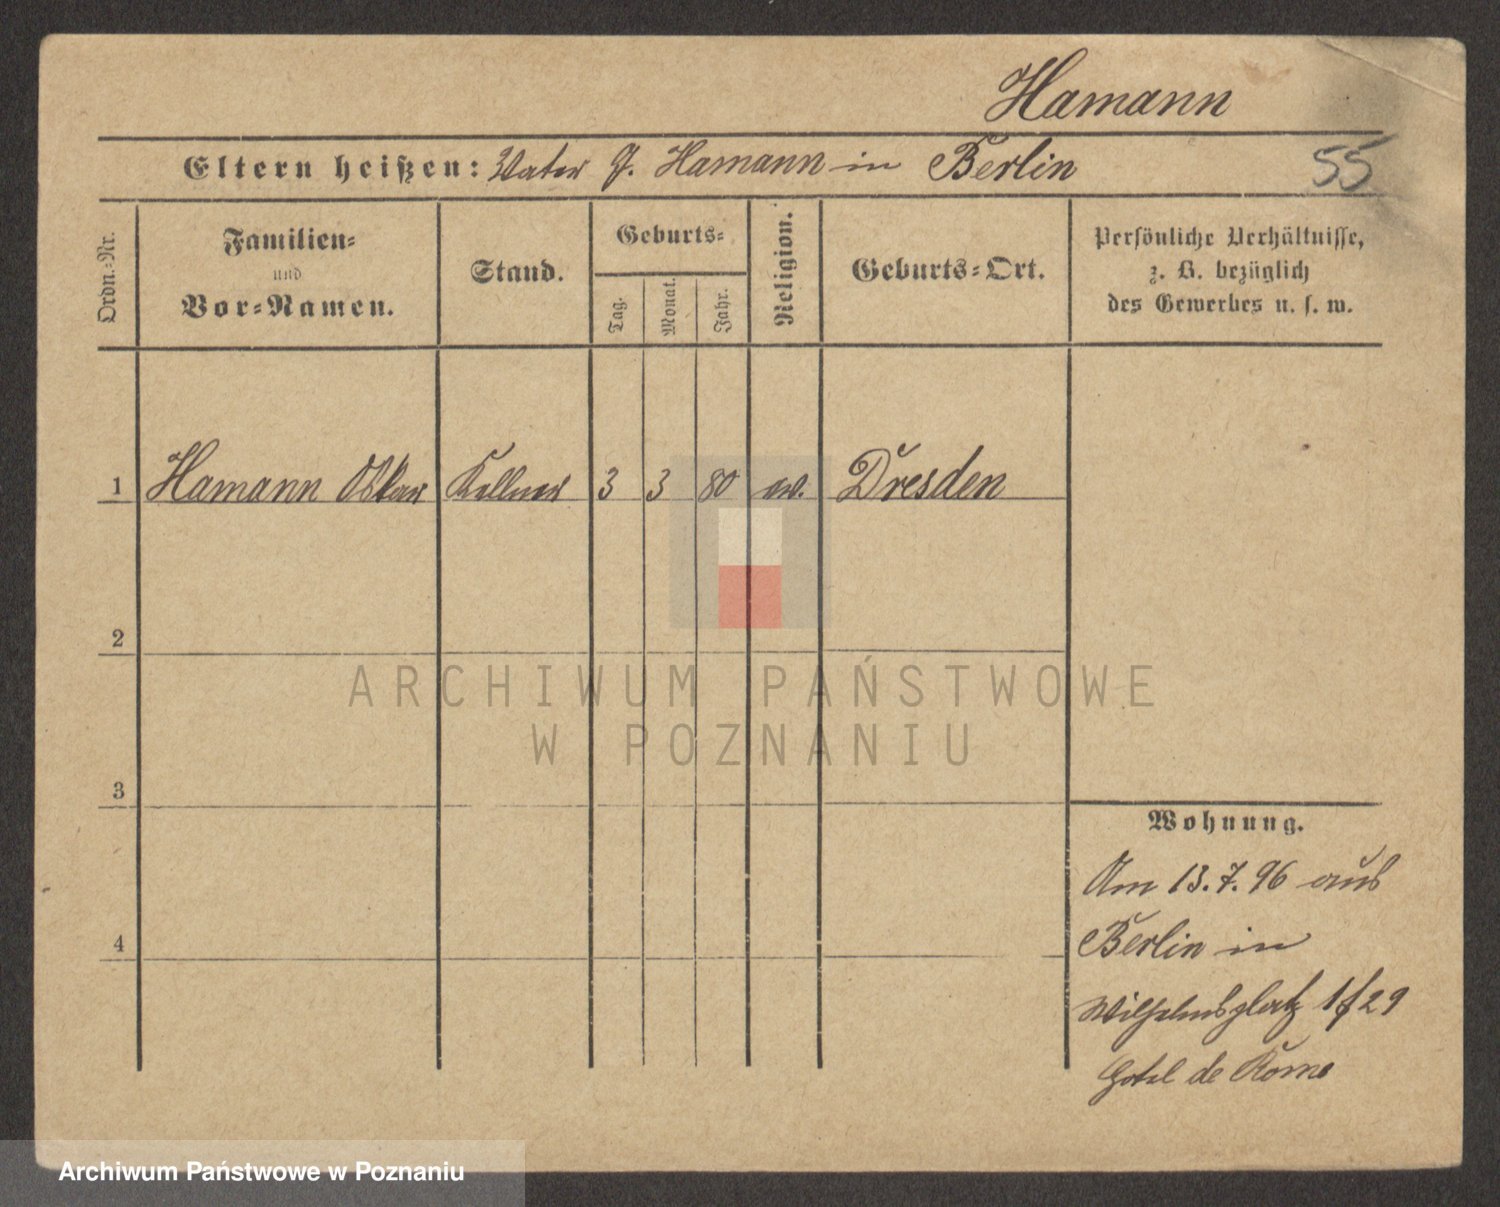 Hamann
Eltern heißen: Vater G. Hamann in Berlin
55
Ordn.-Nr.
Familien-
und
Vor-Namen.
Stand.
Geburts-
Tag.
Monat.
Jahr.
Religion.
Geburts-Ort.
Persönliche Verhältnisse,
z. B. bezüglich
des Gewerbes u. s. w.
1 Hamann Oskar Kellner 3 3 80 ev. Dresden
2
3
4
ARCHIWUM PAŃSTWOWE
W POZNANIU
Wohnung.
Am 13.7.96 aus
Berlin in
Wilhelmsplatz 1/29
Hotel de Rome
Archiwum Państwowe w Poznaniu